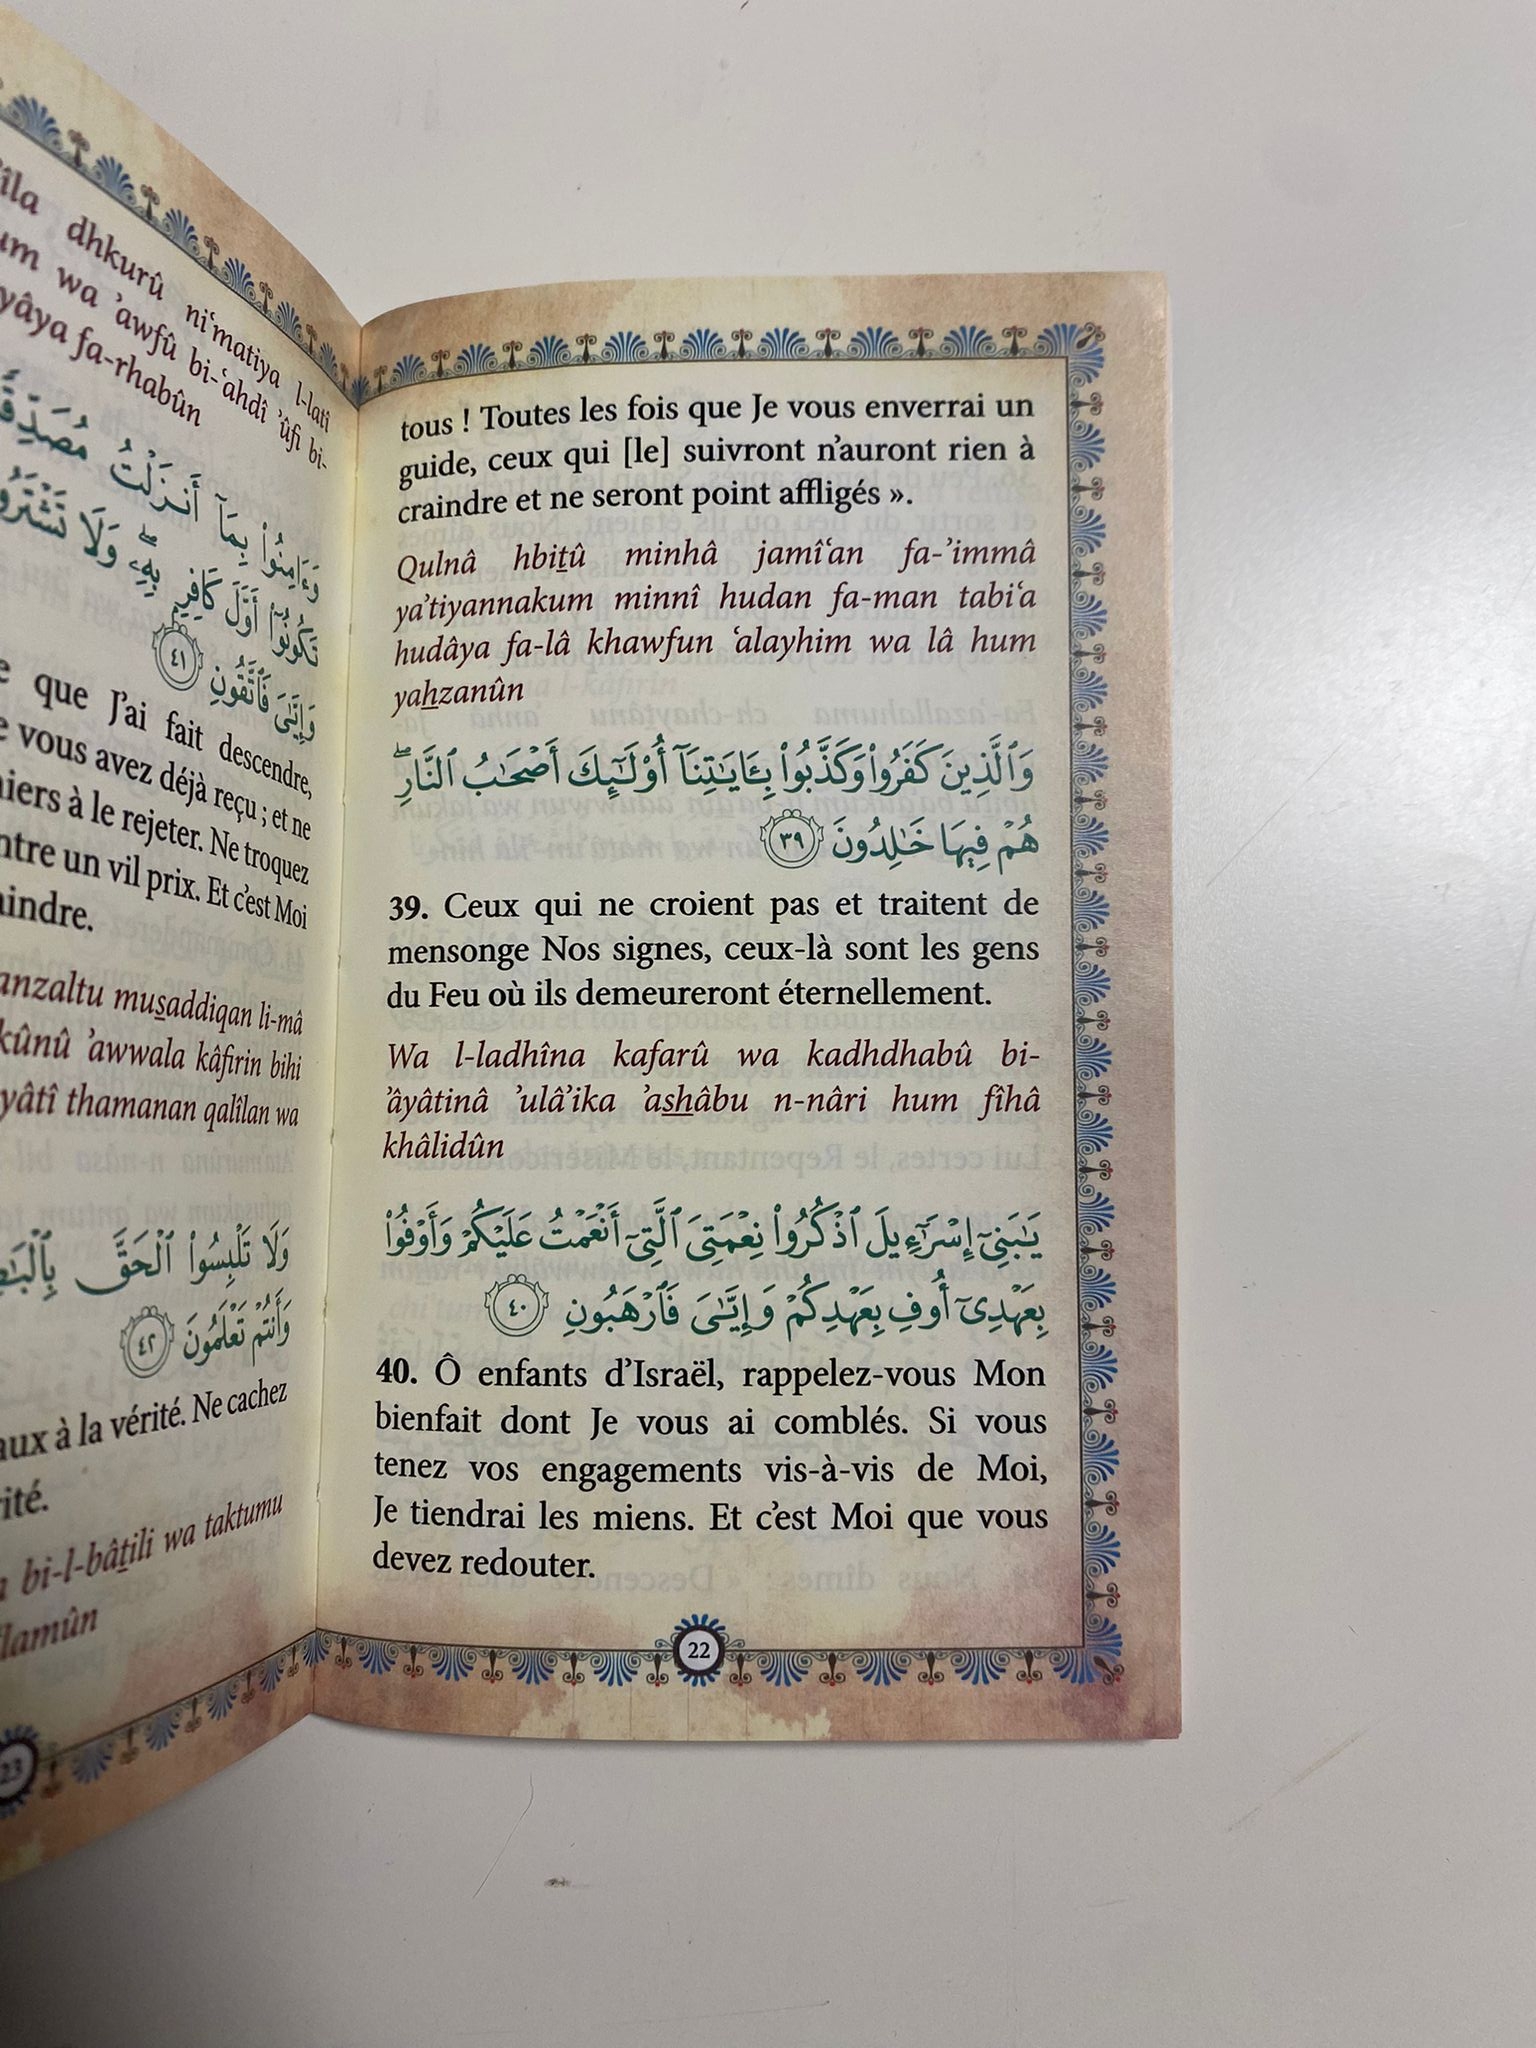 tous ! Toutes les fois que Je vous enverrai un
guide, ceux qui [le] suivront n’auront rien à
craindre et ne seront point affligés ».
Qulnâ hbiṯû minhâ jamî‘an fa-’immâ
ya’tiyannakum minnî hudan fa-man tabi‘a
hudâya fa-lâ khawfun ‘alayhim wa lâ hum
yaẖzanûn
وَٱلَّذِينَ كَفَرُوا۟ وَكَذَّبُوا۟ بِـَٔايَـٰتِنَآ أُو۟لَـٰٓئِكَ أَصْحَـٰبُ ٱلنَّارِ ۖ
هُمْ فِيهَا خَـٰلِدُونَ ٣٩
39. Ceux qui ne croient pas et traitent de
mensonge Nos signes, ceux-là sont les gens
du Feu où ils demeureront éternellement.
Wa l-ladhîna kafarû wa kadhdhabû bi-
’âyâtinâ ’ulâ’ika ’as̱ẖâbu n-nâri hum fîhâ
khâlidûn
يَـٰبَنِىٓ إِسْرَٰٓءِيلَ ٱذْكُرُوا۟ نِعْمَتِىَ ٱلَّتِىٓ أَنْعَمْتُ عَلَيْكُمْ وَأَوْفُوا۟
بِعَهْدِىٓ أُوفِ بِعَهْدِكُمْ وَإِيَّـٰىَ فَٱرْهَبُونِ ٤٠
40. Ô enfants d’Israël, rappelez-vous Mon
bienfait dont Je vous ai comblés. Si vous
tenez vos engagements vis-à-vis de Moi,
Je tiendrai les miens. Et c’est Moi que vous
devez redouter.
22
dhkurû ni‘matiya l-latî
wa ’awfû bi-‘ahdî ’ûfi bi-
fa-rhabûn
وَءَامِنُوا۟ بِمَآ أَنزَلْتُ
تَكُونُوٓا۟ أَوَّلَ كَافِرٍۭ بِهِۦ ۖ وَلَا
وَإِيَّـٰىَ فَٱتَّقُونِ ٤١
que J’ai fait descendre,
vous avez déjà reçu ; et ne
à le rejeter. Ne troquez
un vil prix. Et c’est Moi
muṣaddiqan li-mâ
’awwala kâfirin bihi
thamanan qalîlan wa
وَلَا تَلْبِسُوا۟ ٱلْحَقَّ
وَأَنتُمْ تَعْلَمُونَ ٤٢
à la vérité. Ne cachez
bi-l-bâṯili wa taktumu
23